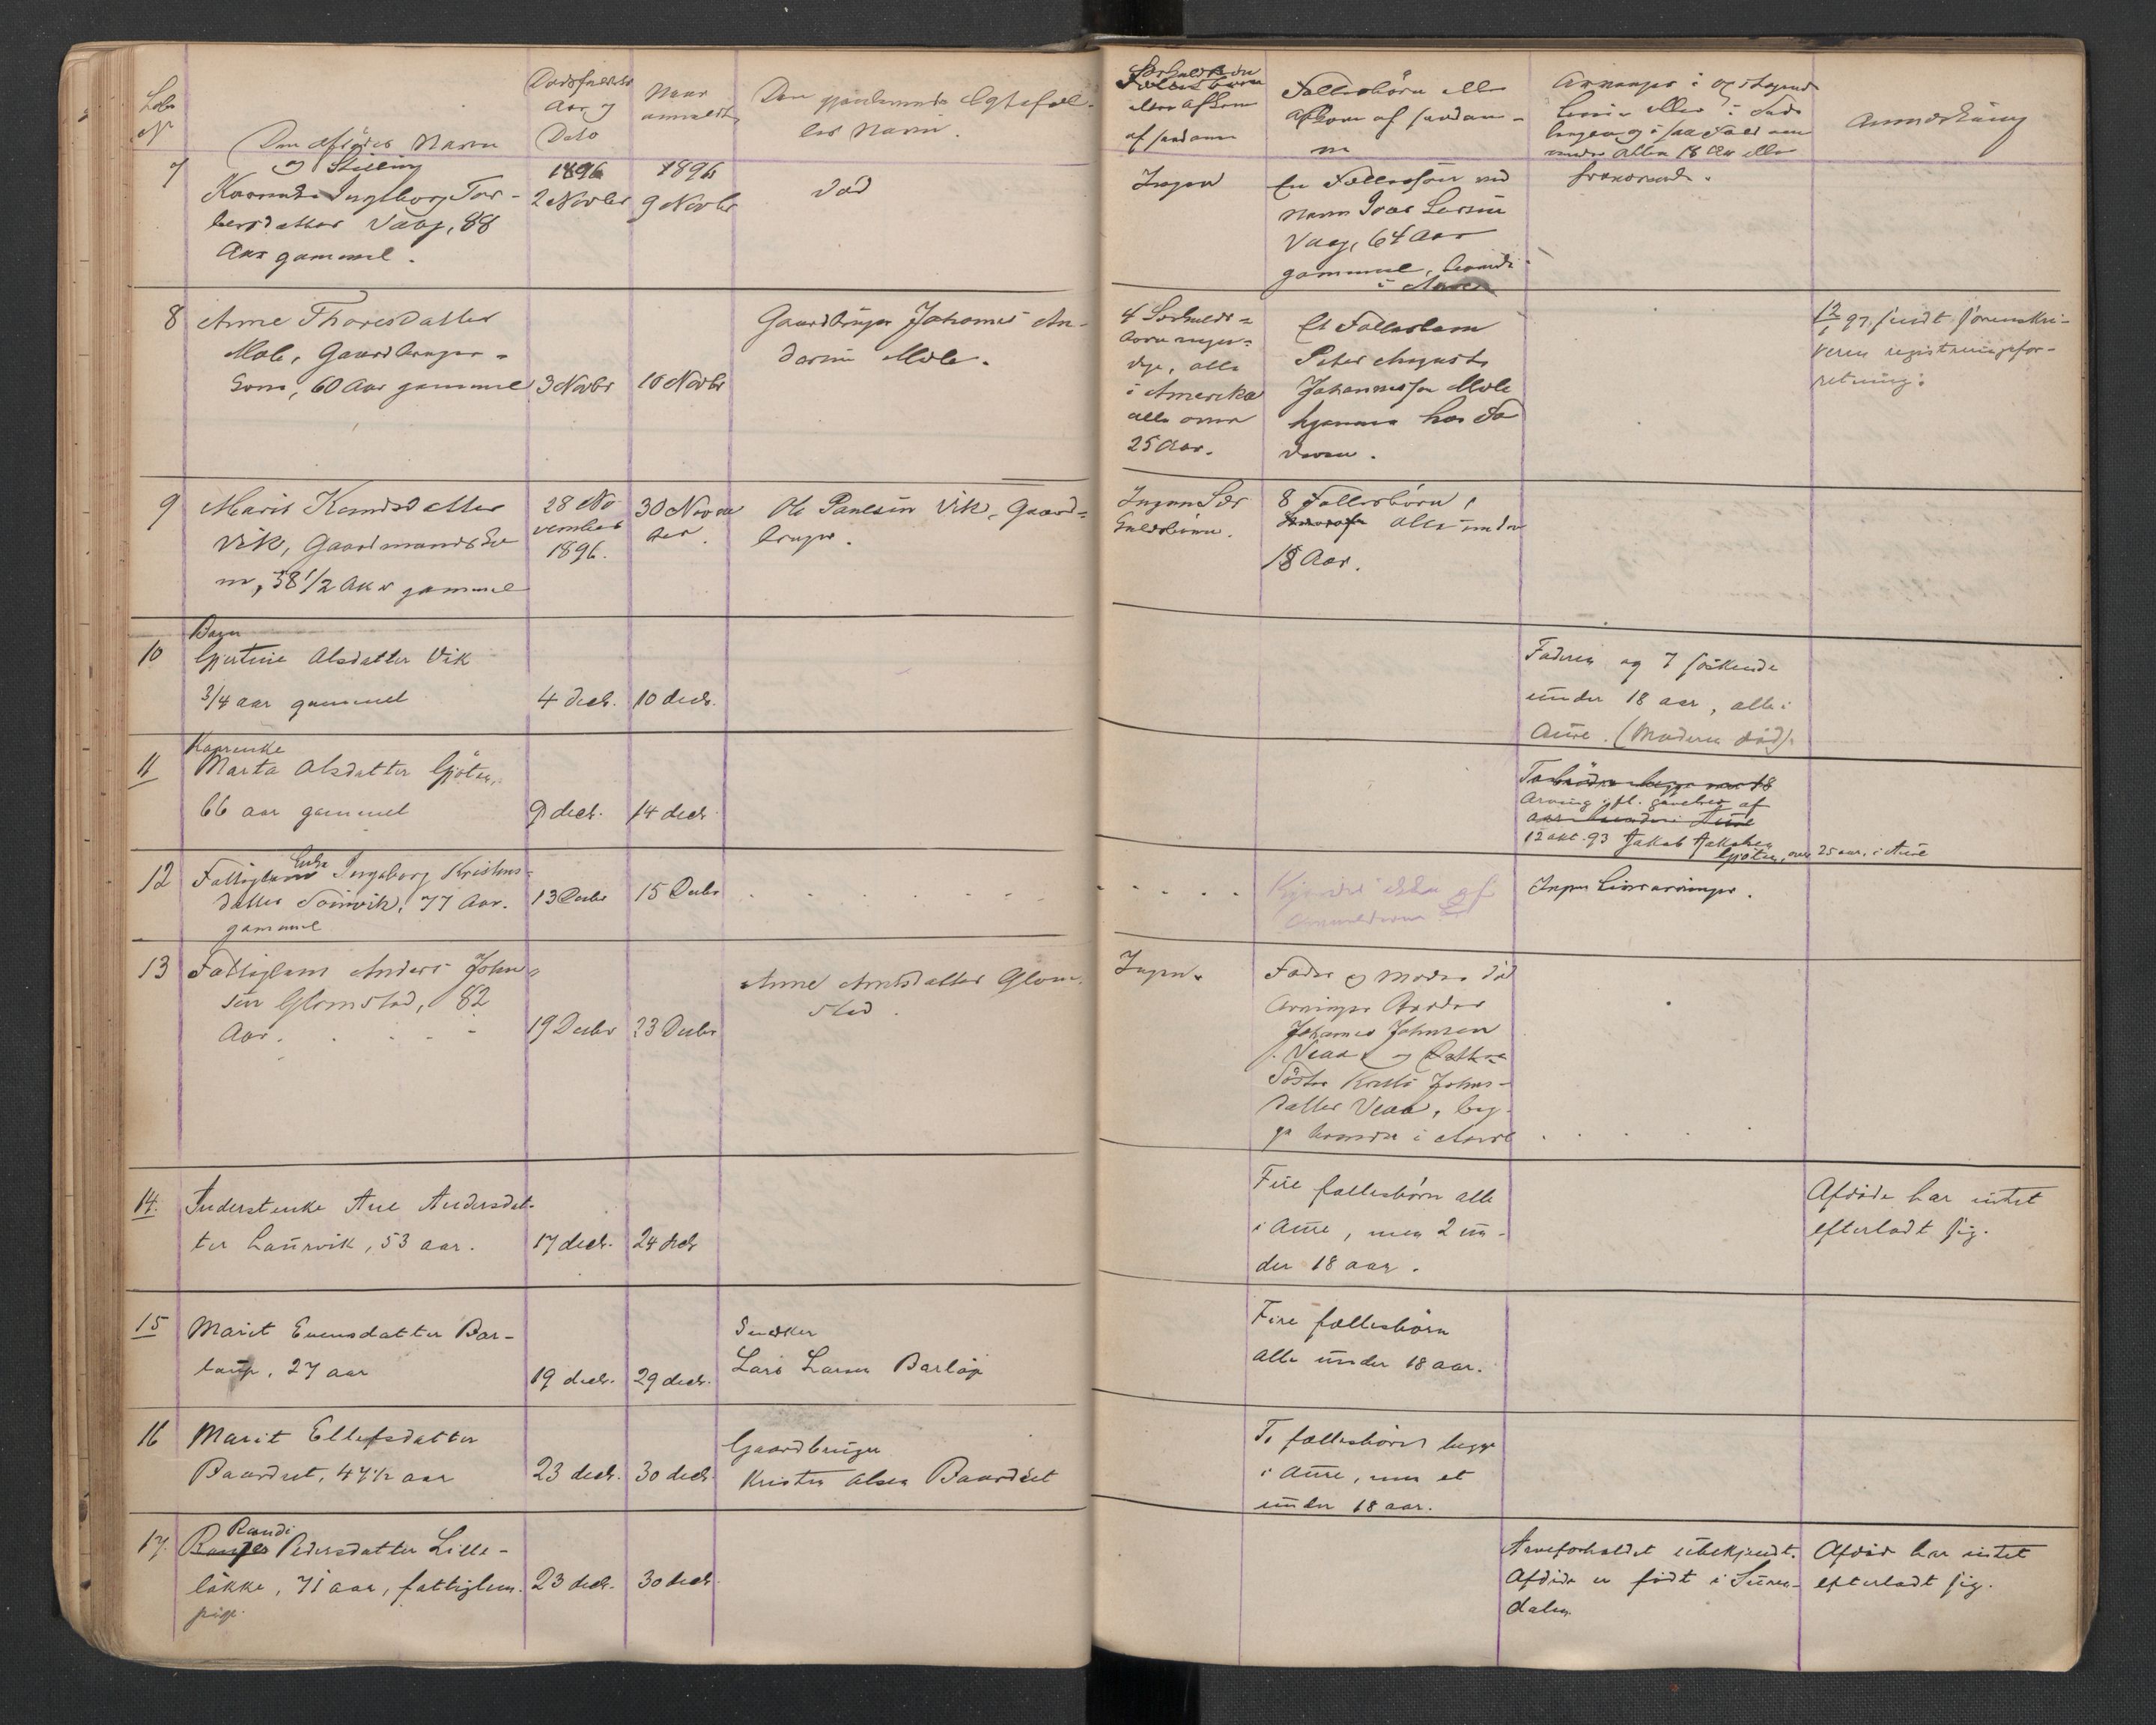 Løbe
№
Den afdødes Navn
og Stilling
Dødsfaldets
Aar og
Dato
Naar
anmeldt
Den gjenlevende Egtefæl-
les Navn.
Særkuldbørn
eller Afkom
af saadanne
Fællesbørn eller
Afkom af saadan-
ne
Arvinger i opstigende
Linie eller i Side
linjen og i saa Fald om
under eller 18 Aar eller
fraværende.
Anmerkning
7
1896
1896
Kaarenke Ingeborg Tor-
bersdatter Vaag, 88
Aar gammel.
2 Novbr
9 Novbr
Død
Ingen
En Fællessøn ved
Navn Ivar Larsen
Vaag, 64 Aar
gammel, boende
i Aure
8
Anne Thoresdatter
Mole, Gaardbruger-
kone, 60 Aar gammel
3 Novbr
10 Novbr
Gaardbruger Johannes An-
dersen Mole.
4 Særkulds-
børn
alle
i Amerika
alle over
25 Aar.
Et Fællesbarn
Peter August
Johannessen Mole
hjemme hos Fa
deren.
12/1 97. sendt sorenskri-
veren registreringsfor-
retning.
9
Marit Knudsdatter
Vik, Gaardmandsko
ne, 38 1/2 Aar gammel
28 No
vember
1896.
30 Novem
ber.
Ole Paulsen Vik, Gaard-
bruger.
Ingen Sær
kuldsbørn.
8 Fællesbørn,
alle under
18 Aar.
10
Barn
Gjertine Olsdatter Vik
3/4 aar gammel
4 decb.
10 decb.
Faderen og 7 søskende
under 18 aar, alle i
Aure. (Moderen død).
11
Kaarenke
Marta Olsdatter Gjøten,
66 aar gammel
9 decb.
14 decb.
To brødre begge over 18
Arving ifl. gavebrev af
aar boende i Aure
12 okt. 93 Jakob Jakobsen
Gjøten, over 25 aar, i Aure
12
Fattiglem Enke Ingeborg Kristens-
datter Soinvik, 77 Aar.
gammel
13 Decbr
15 Decbr
Kjendes ikke af
Anmelderen
Ingen Livsarvinger.
13
Fattiglem Anders John-
sen Glomstad, 82
Aar.
19 Decbr
23 Decbr
Anne Arntsdatter Glom-
stad.
Ingen.
Fader og Moder død
Arvinger Broder
Johannes Johnsen
Veaa og
Søster Kristi Johns-
datter Veaa, beg-
ge boende i Aure
14.
Inderstenke Ane Andersdat-
ter Laurvik, 53 aar.
17 decb.
24 decb
Fire fællesbørn alle
i Aure, men 2 un-
der 18 aar.
Afdøde har intet
efterladt sig.
15
Marit Evensdatter Bar-
laup, 27 aar
19 decb.
29 decb.
Snedker
Lars Larsen Barløp
Fire fællesbørn
alle under 18 aar.
16
Marit Ellefsdatter
Baardset, 47 1/2 aar
23 decb.
30 decb.
Gaardbruger
Kristen Olsen Baardset
To fællesbørn begge
i Aure, men et
under 18 aar.
17.
Randi
Pedersdatter Lille-
løkke, 71 aar, fattiglem.
pige.
23 decb.
30 decb
Arveforholdet ubekjendt.
Afdøde er født i Suren-
dalen
Afdøde har intet
efterladt sig.